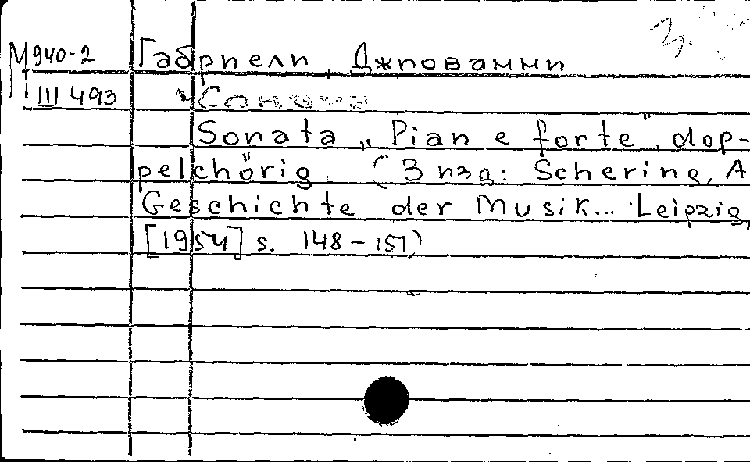 М 940-2 Габриели, Джпованни
III 493 Соната
Sonata „Pian e forte", dop-
pelchörig. (В изд: Schering, A
Geschichte der Musik... Leipzig,
[1954] s. 148-151)